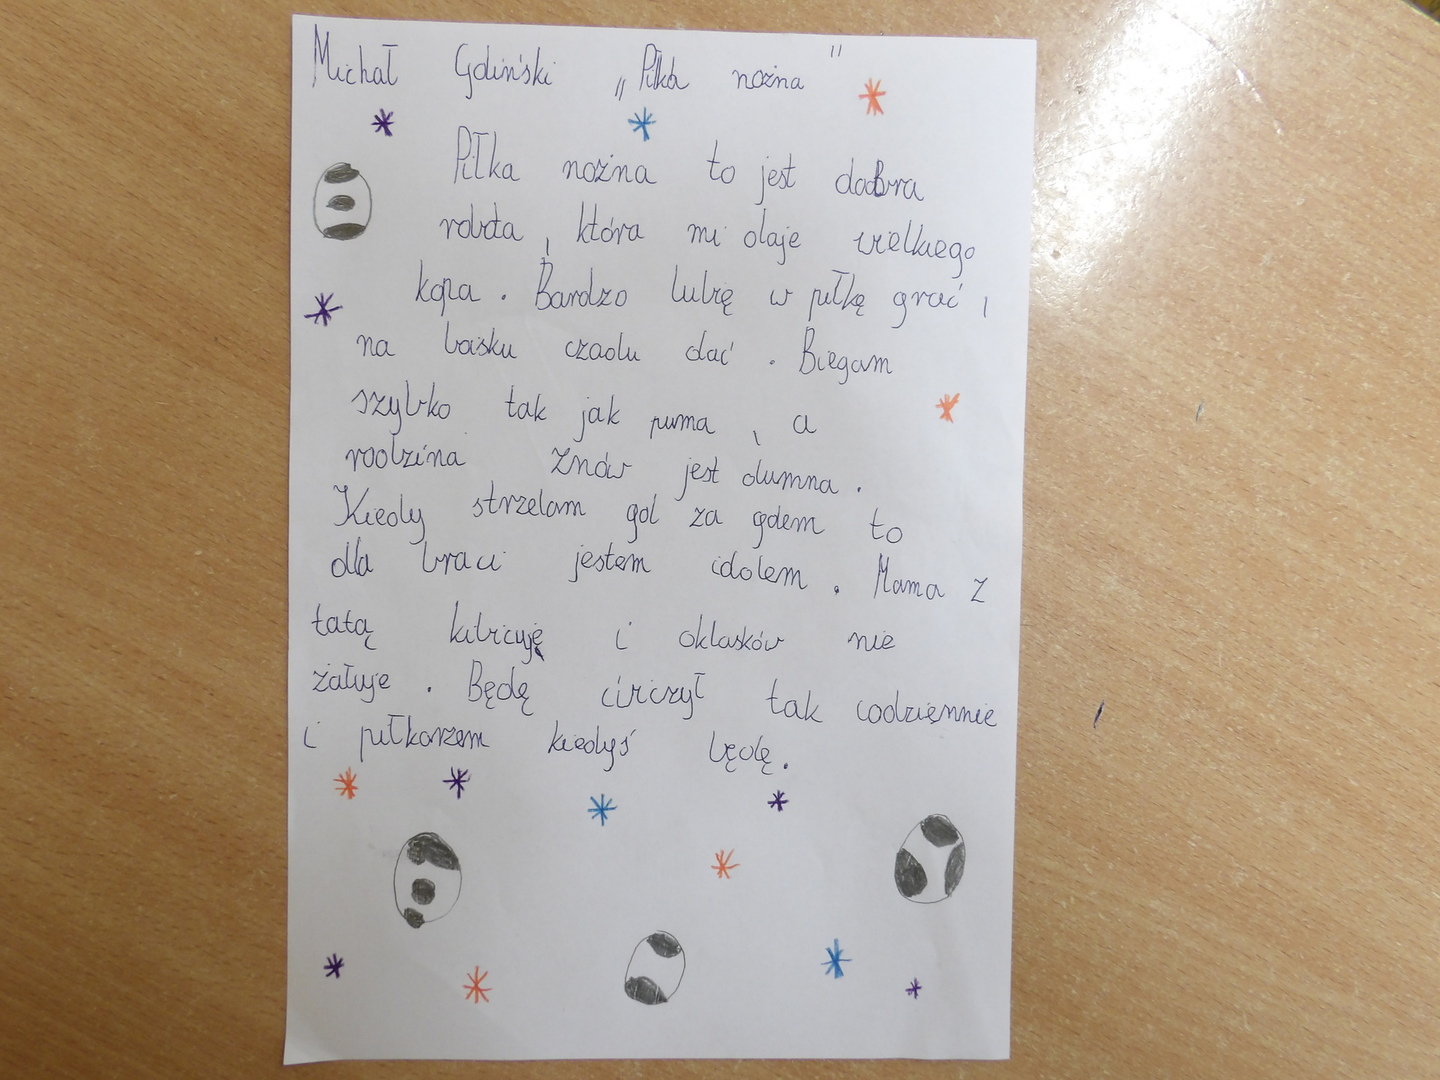 Michał Goliński „Piłka nożna"
Piłka nożna to jest dobra
robota, która mi daje wielkiego
kopa. Bardzo lubię w piłkę grać i
na boisku czadu dać. Biegam
szybko tak jak puma, a
rodzina znów jest dumna.
Kiedy strzelam gol za golem to
dla braci jestem idolem. Mama z
tatą kibicuję i oklasków nie
żałuje. Będę ćwiczył tak codziennie
i piłkarzem kiedyś będę.